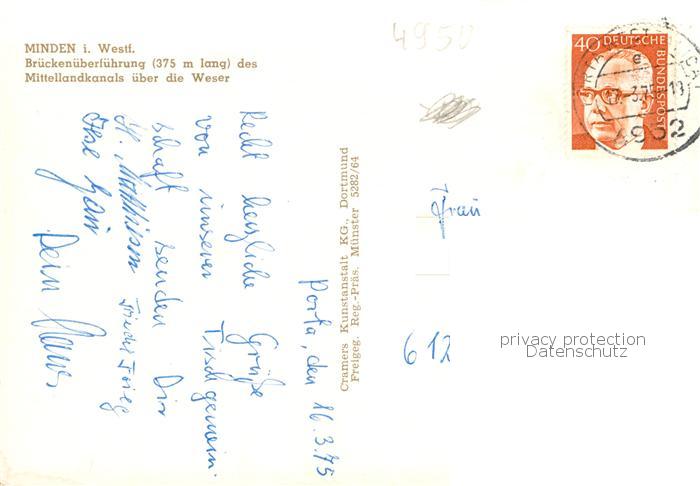 MINDEN i. Westf.
Brückenüberführung (375 m lang) des
Mittellandkanals über die Weser
4950
40 DEUTSCHE
BUNDESPOST
4952
Porta, den 16.3.75
Recht herzliche Grüße
von unserer Tischgemein-
schaft senden Dir
H. Matthiesen
Ilse
Dein
Cramers Kunstanstalt KG., Dortmund
Freigeg. Reg.-Präs. Münster 5282/64
Frau
612
privacy protection
Datenschutz